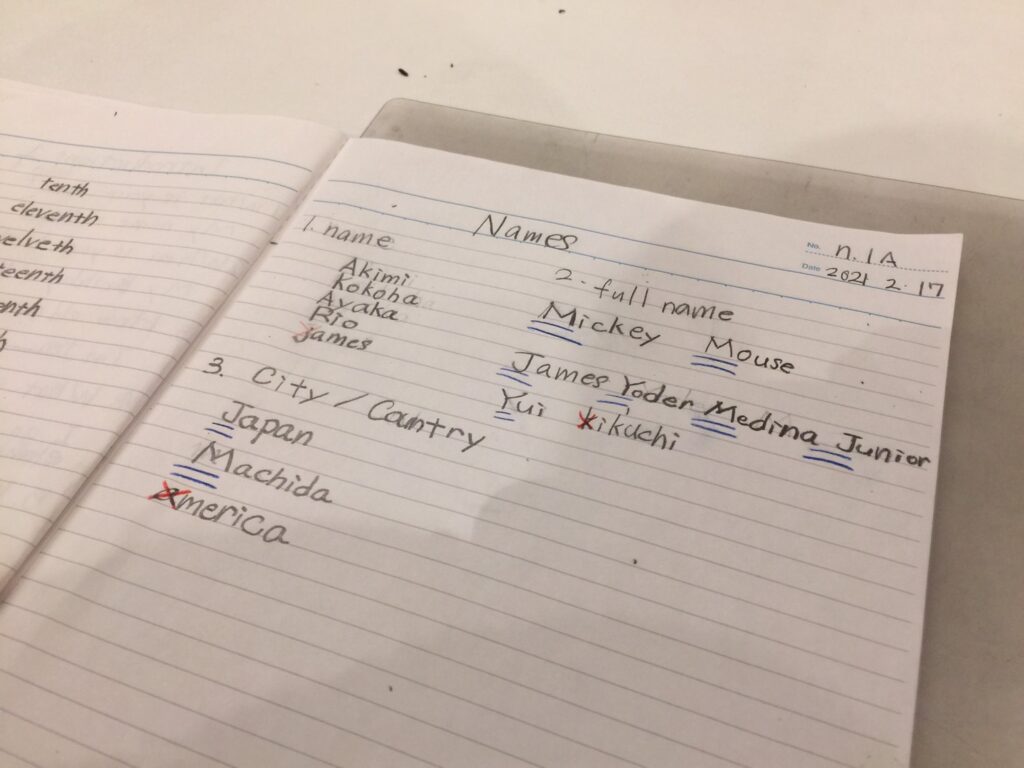 tenth
eleventh
welveth
teenth
enth
h
Names
No. n. 1A
Date 2021 2.17
1. name
Akimi
Kokoha
Ayaka
Rio
james
2. full name
Mickey Mouse
James Yoder Medina Junior
Yui kikuchi
3. City / Country
Japan
Machida
america